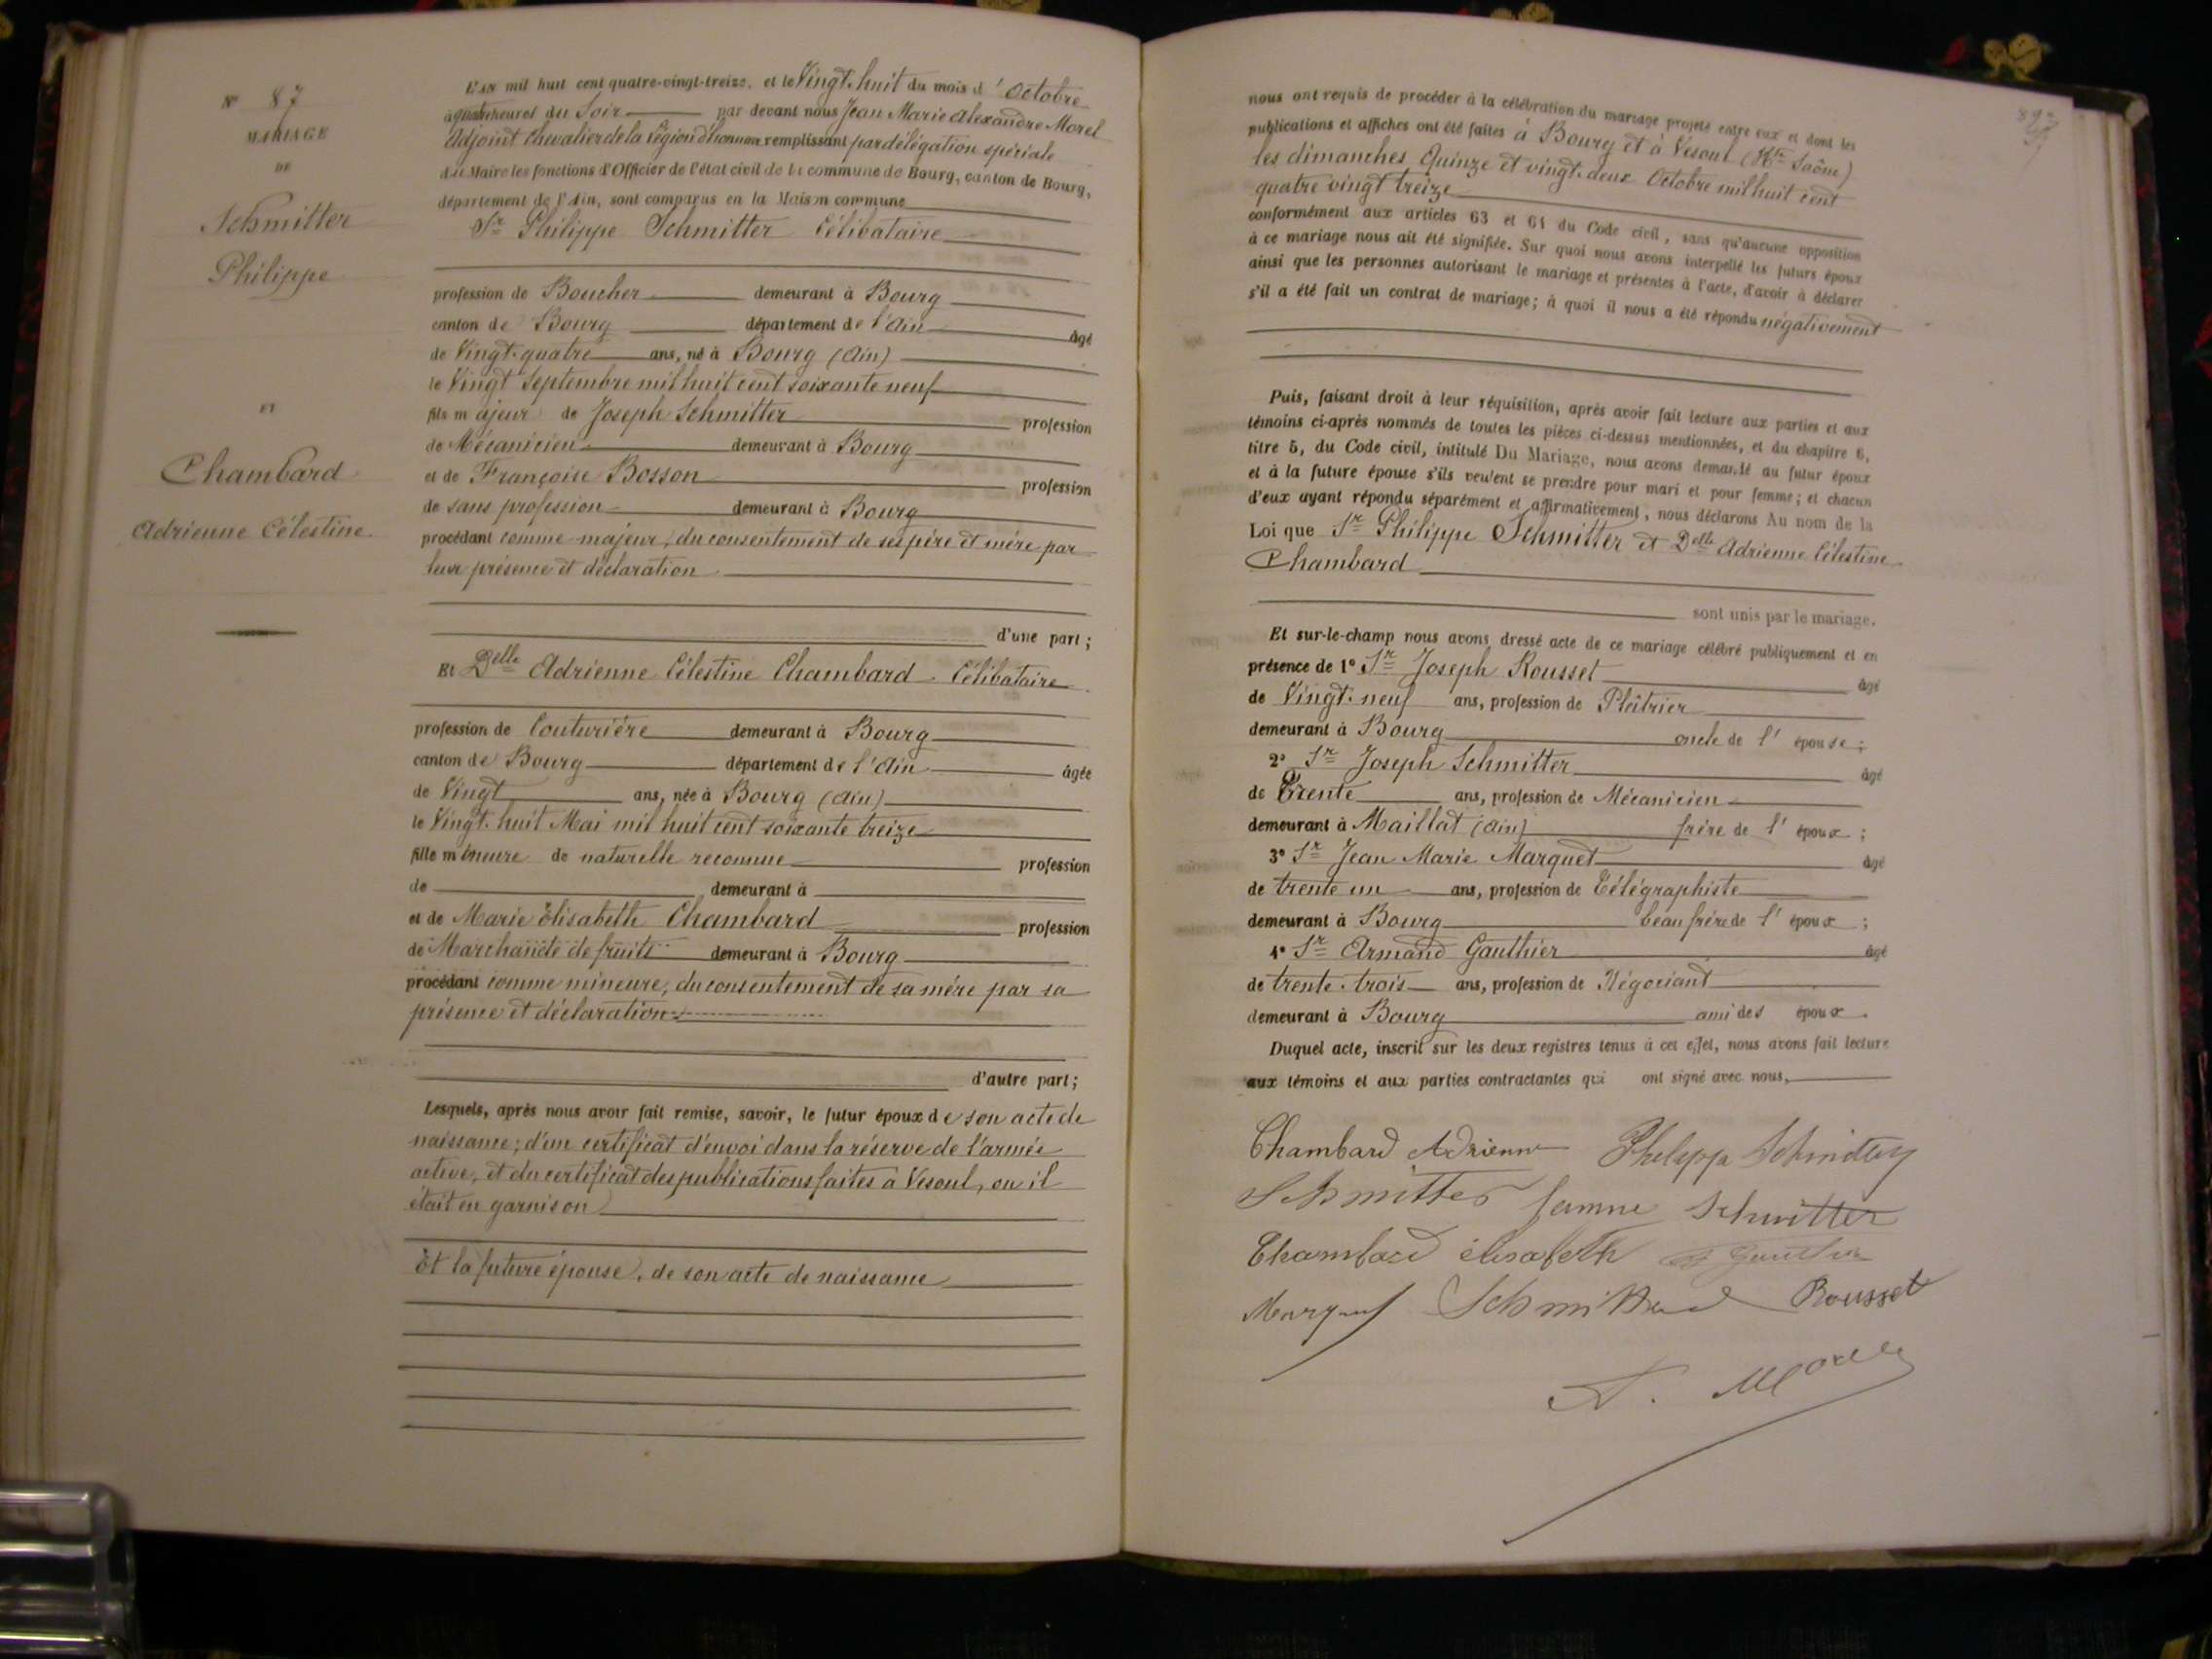 N° 87
MARIAGE
DE
Schmitter
Philippe
ET
Chambard
Adrienne Célestine.
L'AN mil huit cent quatre-vingt-treize, et le Vingt-huit du mois d'Octobre
à quatre heures du Soir par devant nous Jean Marie Alexandre Morel
Adjoint Chevalier de la Légion d'honneur remplissant par délégation spéciale
du Maire les fonctions d'Officier de l'état civil de la commune de Bourg, canton de Bourg,
département de l'Ain, sont comparus en la Maison commune
Sr Philippe Schmitter Célibataire
profession de Boucher demeurant à Bourg
canton de Bourg département de l'Ain âgé
de Vingt-quatre ans, né à Bourg (Ain)
le Vingt Septembre mil huit cent soixante neuf
fils majeur de Joseph Schmitter profession
de Mécanicien demeurant à Bourg
et de Françoise Bosson profession
de sans profession demeurant à Bourg
procédant comme majeur, du consentement de ses père et mère par
leur présence et déclaration
d'une part;
Et Delle Adrienne Célestine Chambard Célibataire
profession de Couturière demeurant à Bourg
canton de Bourg département de l'Ain âgée
de Vingt ans, née à Bourg (Ain)
le Vingt-huit Mai mil huit cent soixante treize
fille mineure de naturelle reconnue profession
de demeurant à
et de Marie Elisabeth Chambard profession
de Marchande de fruits demeurant à Bourg
procédant comme mineure, du consentement de sa mère par sa
présence et déclaration
d'autre part;
Lesquels, après nous avoir fait remise, savoir, le futur époux de son acte de
naissance; d'un certificat d'envoi dans la réserve de l'armée
active, et du certificat des publications faites à Vesoul, ou il
était en garnison
Et la future épouse, de son acte de naissance
nous ont requis de procéder à la célébration du mariage projeté entre eux et dont les
publications et affiches ont été faites à Bourg et à Vesoul (Hte Saône)
les dimanches Quinze et vingt-deux Octobre mil huit cent
quatre vingt treize
conformément aux articles 63 et 64 du Code civil, sans qu'aucune opposition
à ce mariage nous ait été signifiée. Sur quoi nous avons interpellé les futurs époux
ainsi que les personnes autorisant le mariage et présentes à l'acte, d'avoir à déclarer
s'il a été fait un contrat de mariage; à quoi il nous a été répondu négativement
Puis, faisant droit à leur réquisition, après avoir fait lecture aux parties et aux
témoins ci-après nommés de toutes les pièces ci-dessus mentionnées, et du chapitre 6,
titre 5, du Code civil, intitulé Du Mariage, nous avons demandé au futur époux
et à la future épouse s'ils veulent se prendre pour mari et pour femme; et chacun
d'eux ayant répondu séparément et affirmativement, nous déclarons Au nom de la
Loi que Sr Philippe Schmitter et Delle Adrienne Célestine
Chambard
sont unis par le mariage.
Et sur-le-champ nous avons dressé acte de ce mariage célébré publiquement et en
présence de 1° Sr Joseph Rousset âgé
de Vingt-neuf ans, profession de Plâtrier
demeurant à Bourg oncle de l'épouse;
2° Sr Joseph Schmitter âgé
de Trente ans, profession de Mécanicien
demeurant à Maillat (Ain) frère de l'époux;
3° Sr Jean Marie Marquet âgé
de trente un ans, profession de Télégraphiste
demeurant à Bourg beau frère de l'époux;
4° Sr Armand Gauthier âgé
de trente-trois ans, profession de Négociant
demeurant à Bourg ami des époux.
Duquel acte, inscrit sur les deux registres tenus à cet effet, nous avons fait lecture
aux témoins et aux parties contractantes qui ont signé avec nous,
Chambard Adrienne Philippe Schmitter
Schmitter femme Schmitter
Chambard élisabeth
Marquet Schmitter Rousset
A. Morel